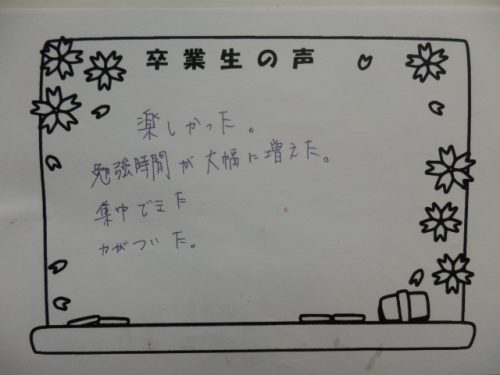 卒業生の声
楽しかった。
勉強時間が大幅に増えた。
集中できた
力がついた。